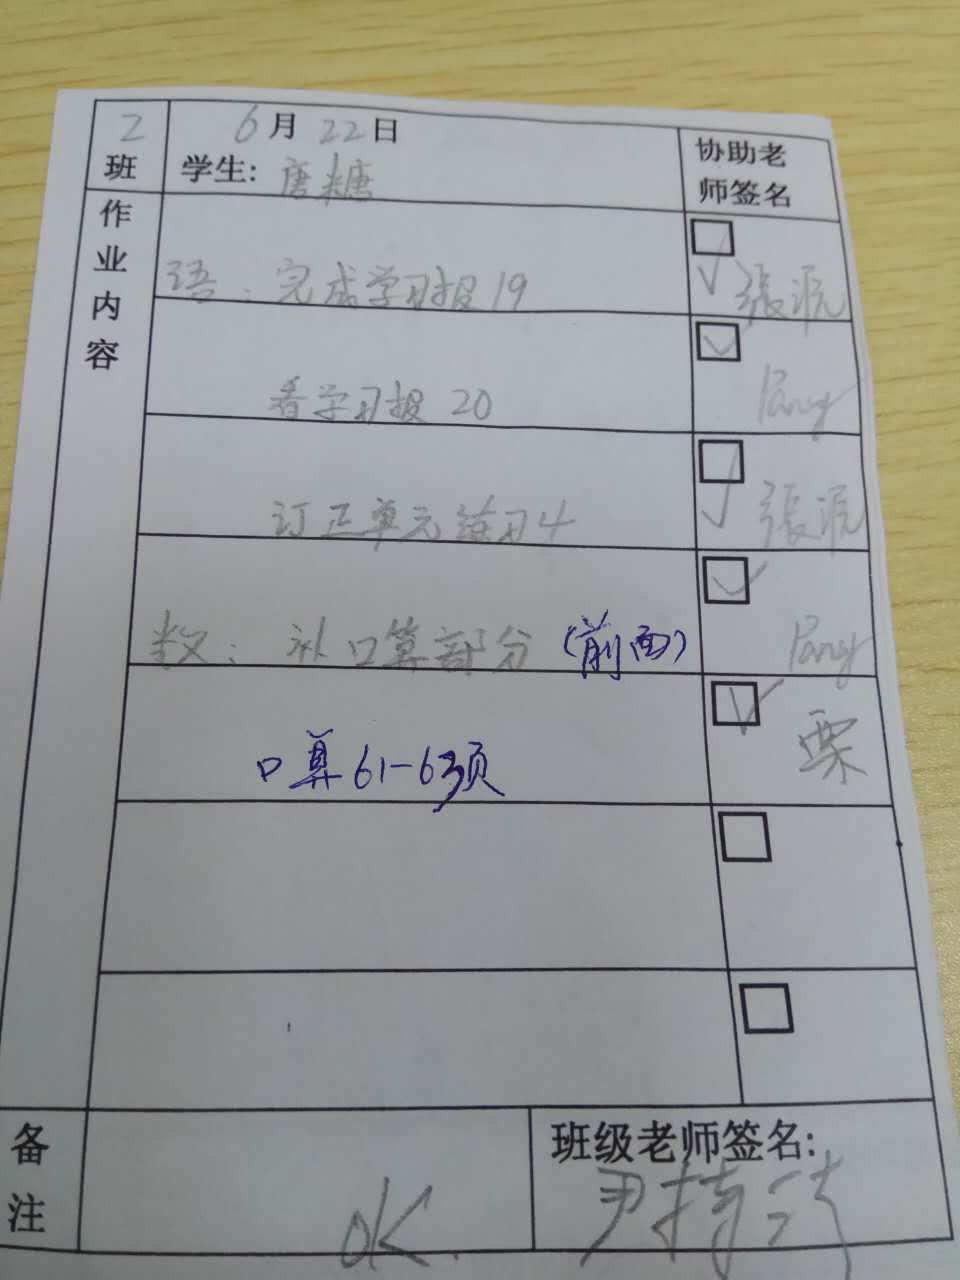 2班
6月22日
学生: 唐糖
协助老师签名
作业内容
语: 完成学习报19
張泥
看学习报20
Pany
订正单元练习4
張泥
数: 补口算部分(前面)
Pany
口算61-63页
栗
备注
OK.
班级老师签名: